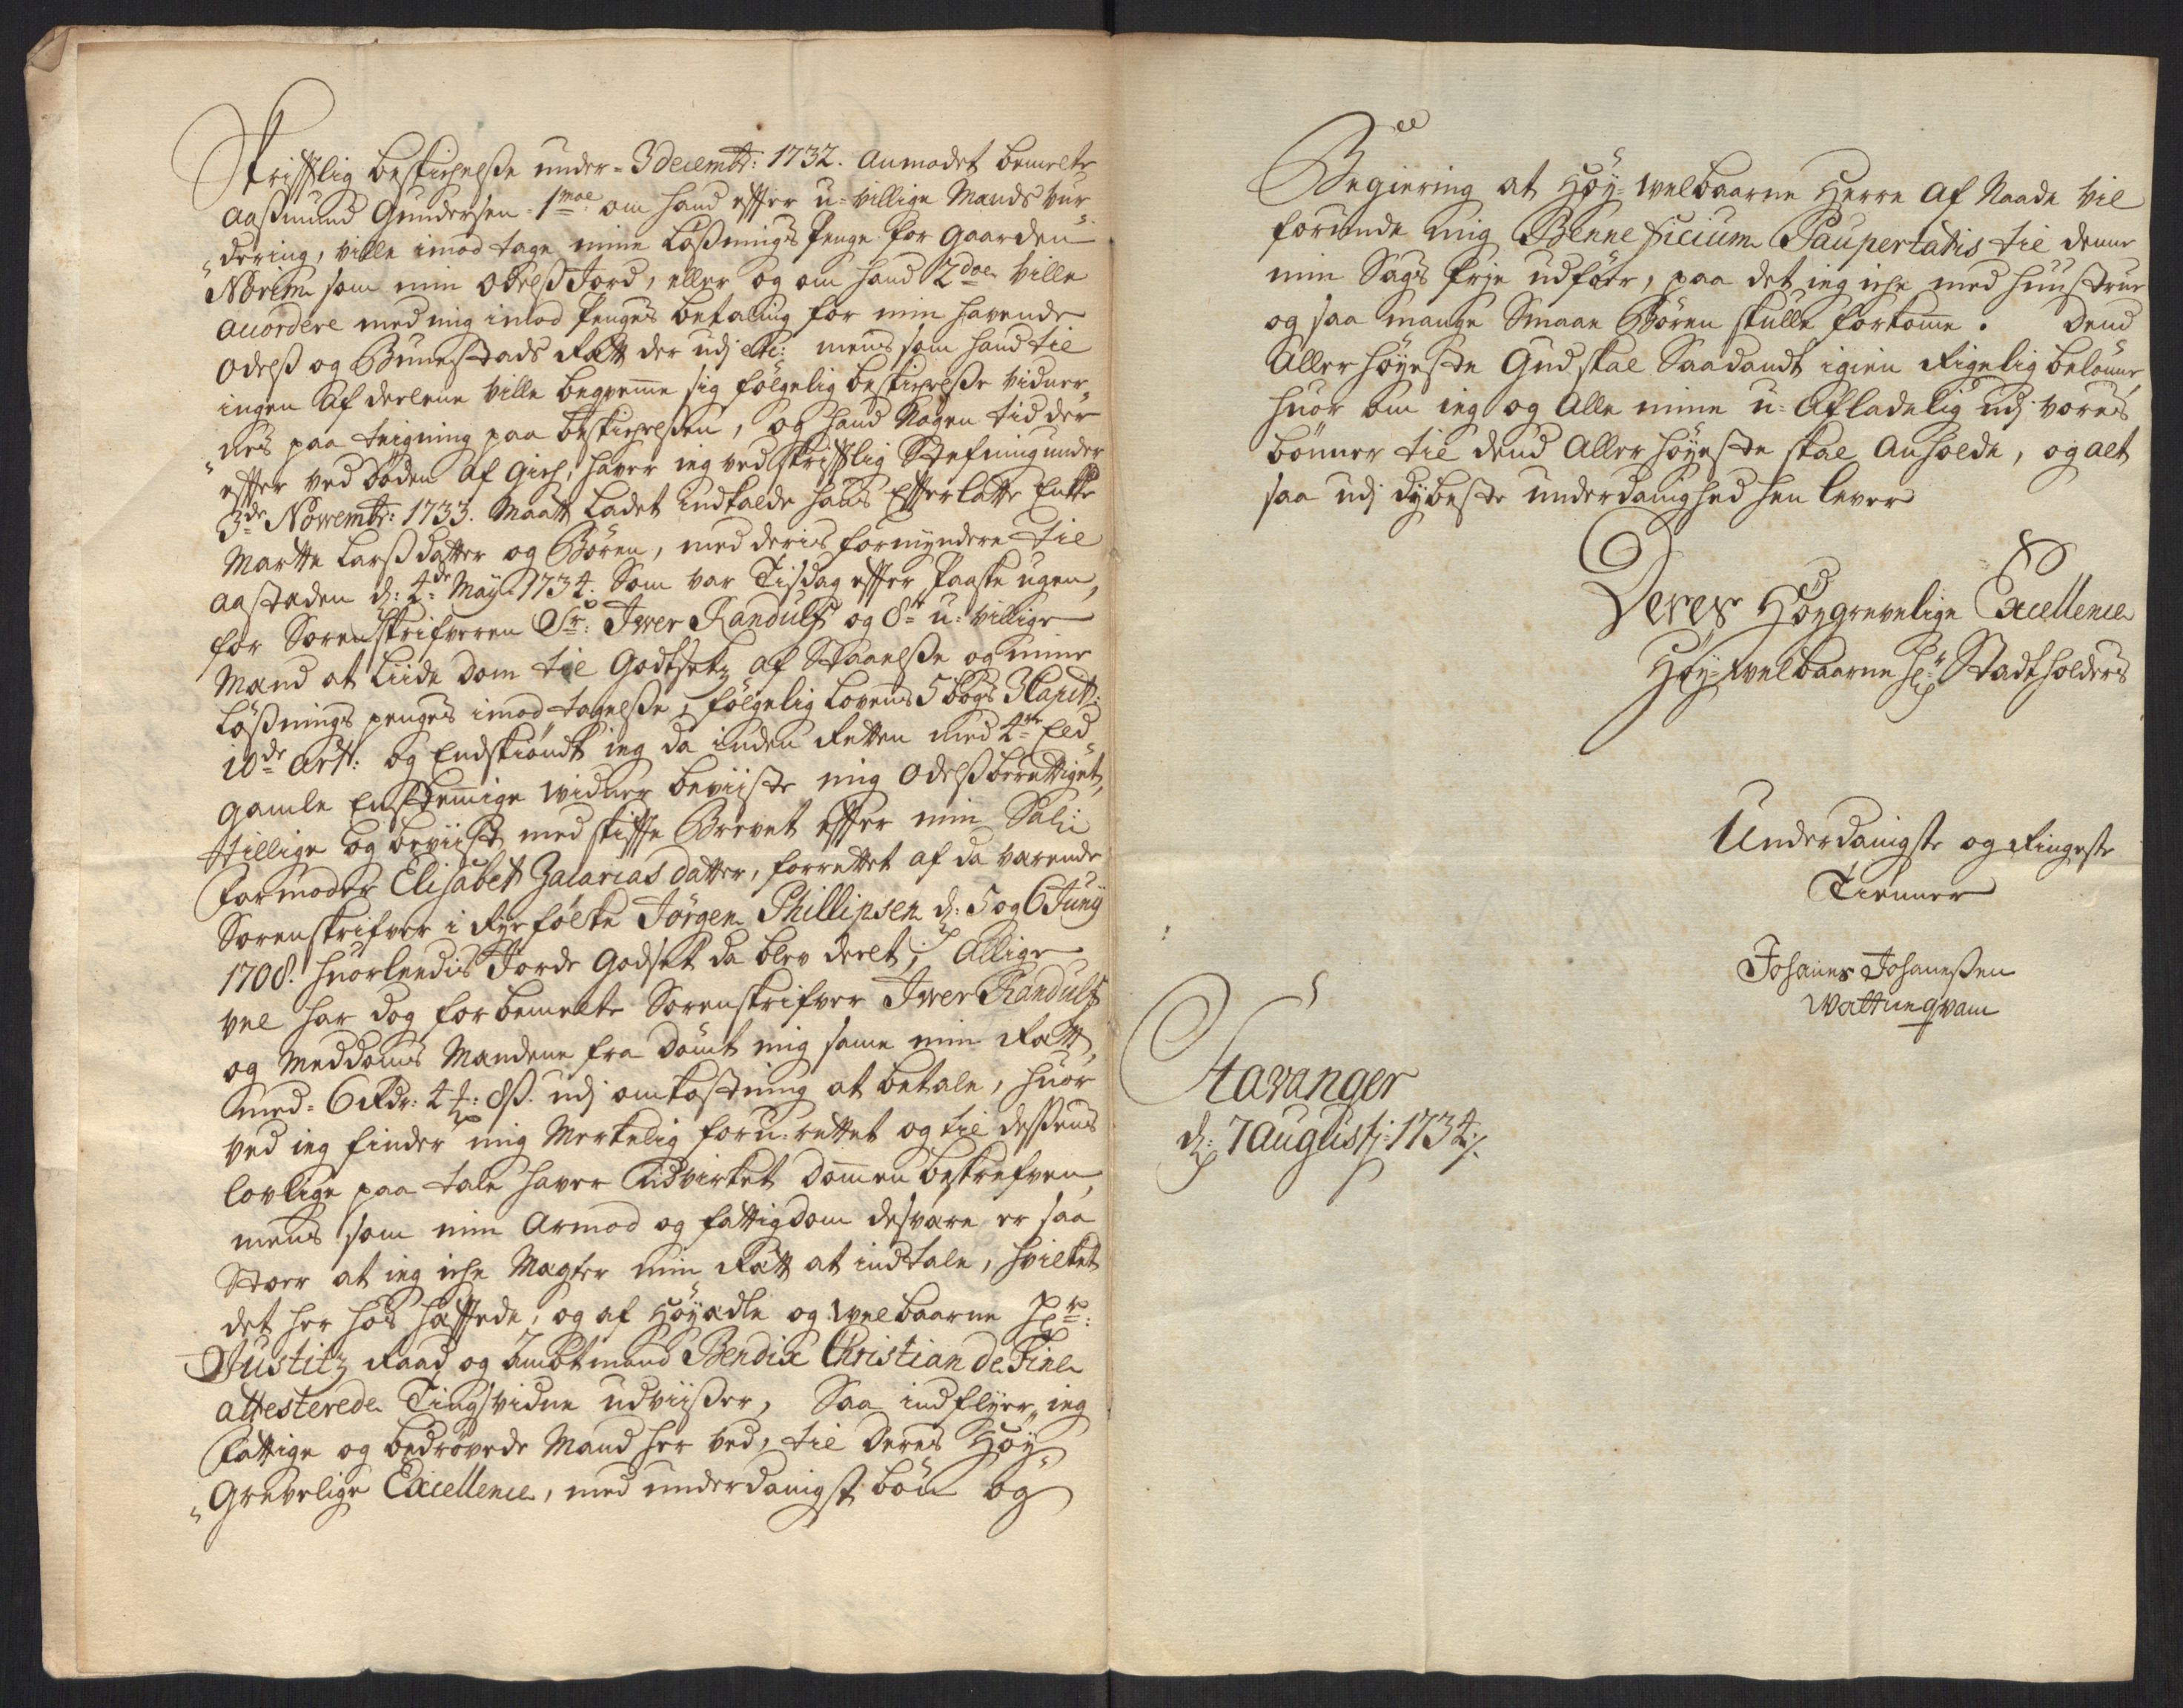 Skrifftlig beskichelße under- 3 decembr: 1732. anmodet bemelte
Aaßmund Gundersen - 1moe om hand effter u-villige Mands vur
dering, ville imod tage mine Lößnings Penge for gaarden
Norim som min Odelß Jord, eller og om hand 2doe ville
accordere med mig imod Penges betaling for min havende
Odelß og Bunestads Rætt der udj etc: mens som hand til
ingen af delene ville beqvemme sig følgelig beskichelße vidner
nes paa teigning paa beskichelßen, og hand Nogen tid der
effter ved døden af gich, haver ieg ved skrifftlig Stefning under
3de Novembr: 1733. Maatt Ladet indkalde hans Effterlatte Encke
Martte Larßdatter og Børen, med deris formyndere til
aastæden d: 4de May 1734. Som var Tisdag effter Paaske ugen,
for Sorenskrifveren Sr: Iver Randulf og 8te u-villige
Mænd at Liide Dom til godtsets af Staaelße og mine
Lößnings penges imod tagelße, følgelig Lovens 5 bogs 3 Capit:
10de Art: og Endskiøndt ieg da inden Retten med 4re Eld
gamle Enstemmige vidner beviiste mig Odelßberettiget,
tillige og beviist med skiffte Brevet effter min Sal:
Farmoder Elisabet Zacarias datter, forrettet af da værende
Sorenskrifver i Ryefølcke Jörgen Phillipsen d: 5 og 6 Junij
1708. huorleedis Jorde godset da blev deelt; Allige
vel har dog forbemelte Sorenskrifver Iver Randulf
og Meddoms Mændene fra dømt mig samme min Rætt,
med- 6 Rdr: 4 : 8 ß. udj omkostning at betale, huor
ved ieg finder mig Merkelig foru-rettet og til deßens
lovlige paa tale haver udvirket dommen beskrefven,
mens som min Armod og fattigdom desværre er saa
Stoer at ieg iche Magter min Rætt at indtale, hvilket
det her hos hæfftede, og af Høyædle og Velbaarne Hr:
Justitz Raad og Ambtmand Bendix Christian de Fine
attesterede Tingsvidne udviißer, Saa indflyer ieg
Fattige og bedrøvede Mand her ved, til Deres Høy
Grevelige Excellence, med underdanigst bøn og
Begiering at Høy-Velbaarne Herre Af Naade vil
forunde mig Benneficium Paupertatis til denne
min Sags frje udføer, paa det ieg iche med huustrue
og saa mange Smaae Børen skulle forkomme. Dend
Allerhøyeste Gud skal Saadandt igien Rigelig belønne,
huor om ieg og Alle mine u-Afladelig udj vores
bønner til dend Aller høyeste skal Anholde, og alt
saa udj dybeste underdanighed hen lever
Deres Høygrevelige Excellence
Høy-Velbaarne Hr: Stadtholders
Underdanigste og Ringeste
Tienner
Johannes Johanneßen
Wattneqvam
Stavanger
d: 7 Augustj: 1734.